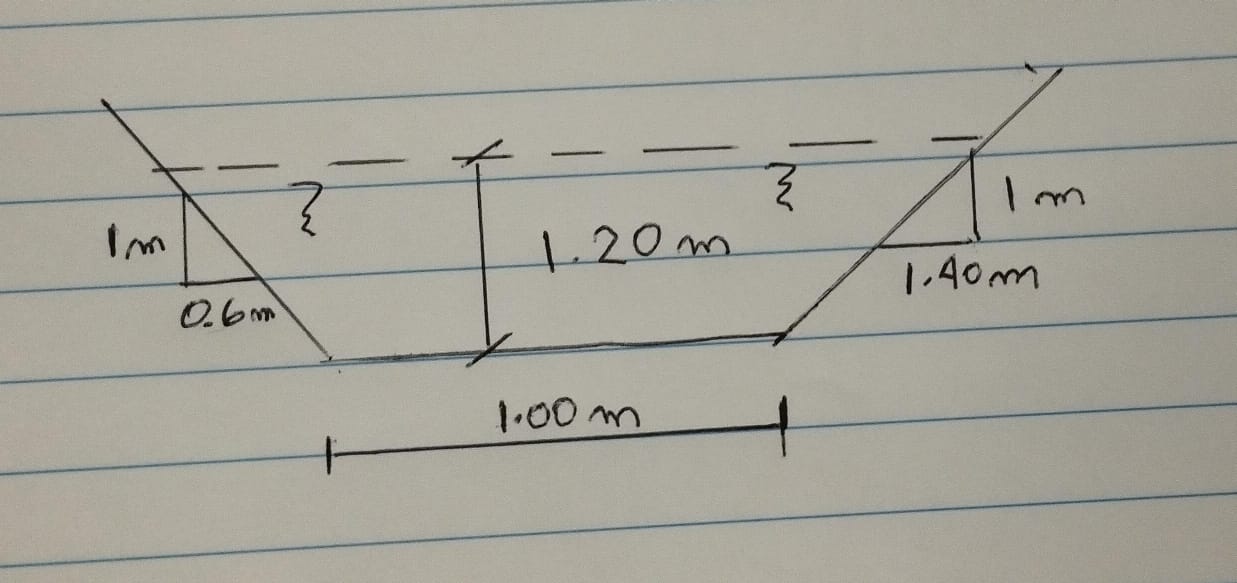 1m
1m
1.20m
0.6m
1.40m
1.00m